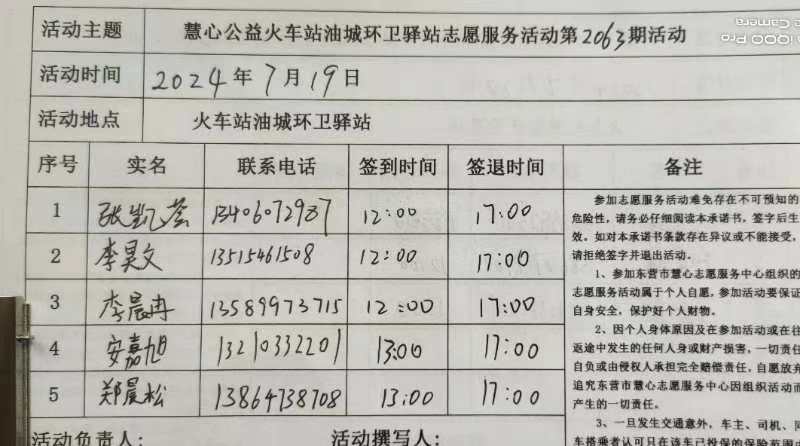 活动主题 慧心公益火车站油城环卫驿站志愿服务活动第2063期活动
活动时间 2024年7月19日
活动地点 火车站油城环卫驿站
序号 实名 联系电话 签到时间 签退时间 备注
1 张凯荟 13406072937 12:00 17:00
2 李昊文 13515461508 12:00 17:00
3 李晨冉 13589973715 12:00 17:00
4 安嘉旭 13210332201 13:00 17:00
5 郑晨松 13864738708 13:00 17:00
参加志愿服务活动难免存在不可预知的
危险性，请务必仔细阅读本承诺书，签字后生
效。如对本承诺书条款存在异议或不能接受，
请拒绝签字并退出活动。
1、参加东营市慧心志愿服务中心组织的
志愿服务活动属于个人自愿，参加活动要保证
自身安全，保护好个人财物。
2、因个人身体原因及在参加活动或在往
返途中发生的任何人身或财产损害，一切责任
自负或由侵权人承担完全赔偿责任，自愿放弃
追究东营市慧心志愿服务中心因组织活动而
产生的一切责任。
3、一旦发生交通意外，车主、司机、同
车搭乘者认可只在该车已投保的保险范围内
活动负责人： 活动撰写人：
iQOO Pro
Camera